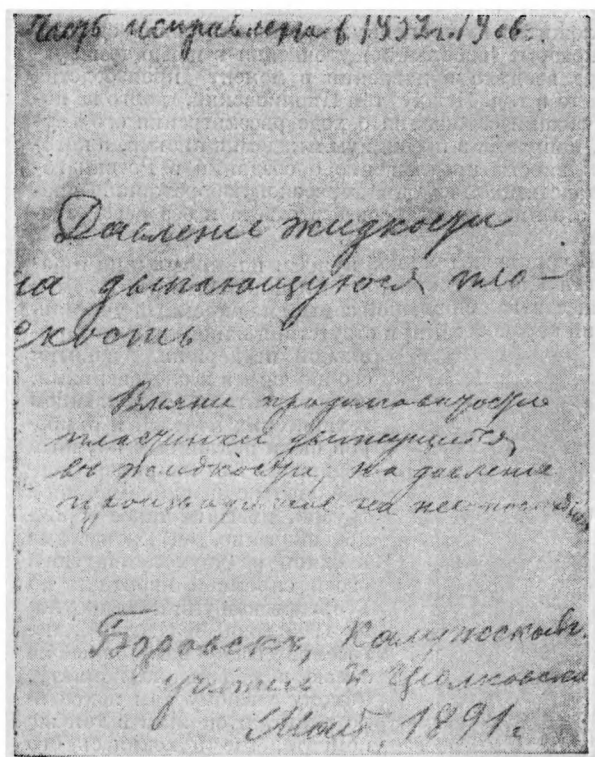 Часть исправлена в 1937 г. 19 ов.
Давление жидкости
на движающуюся пло-
скость
Влияние продолговатости
пластинки движущейся
въ жидкости, на давление
производимое на нее
Боровскъ, Калужской г.
учитель К Циолковский
Май, 1891 г